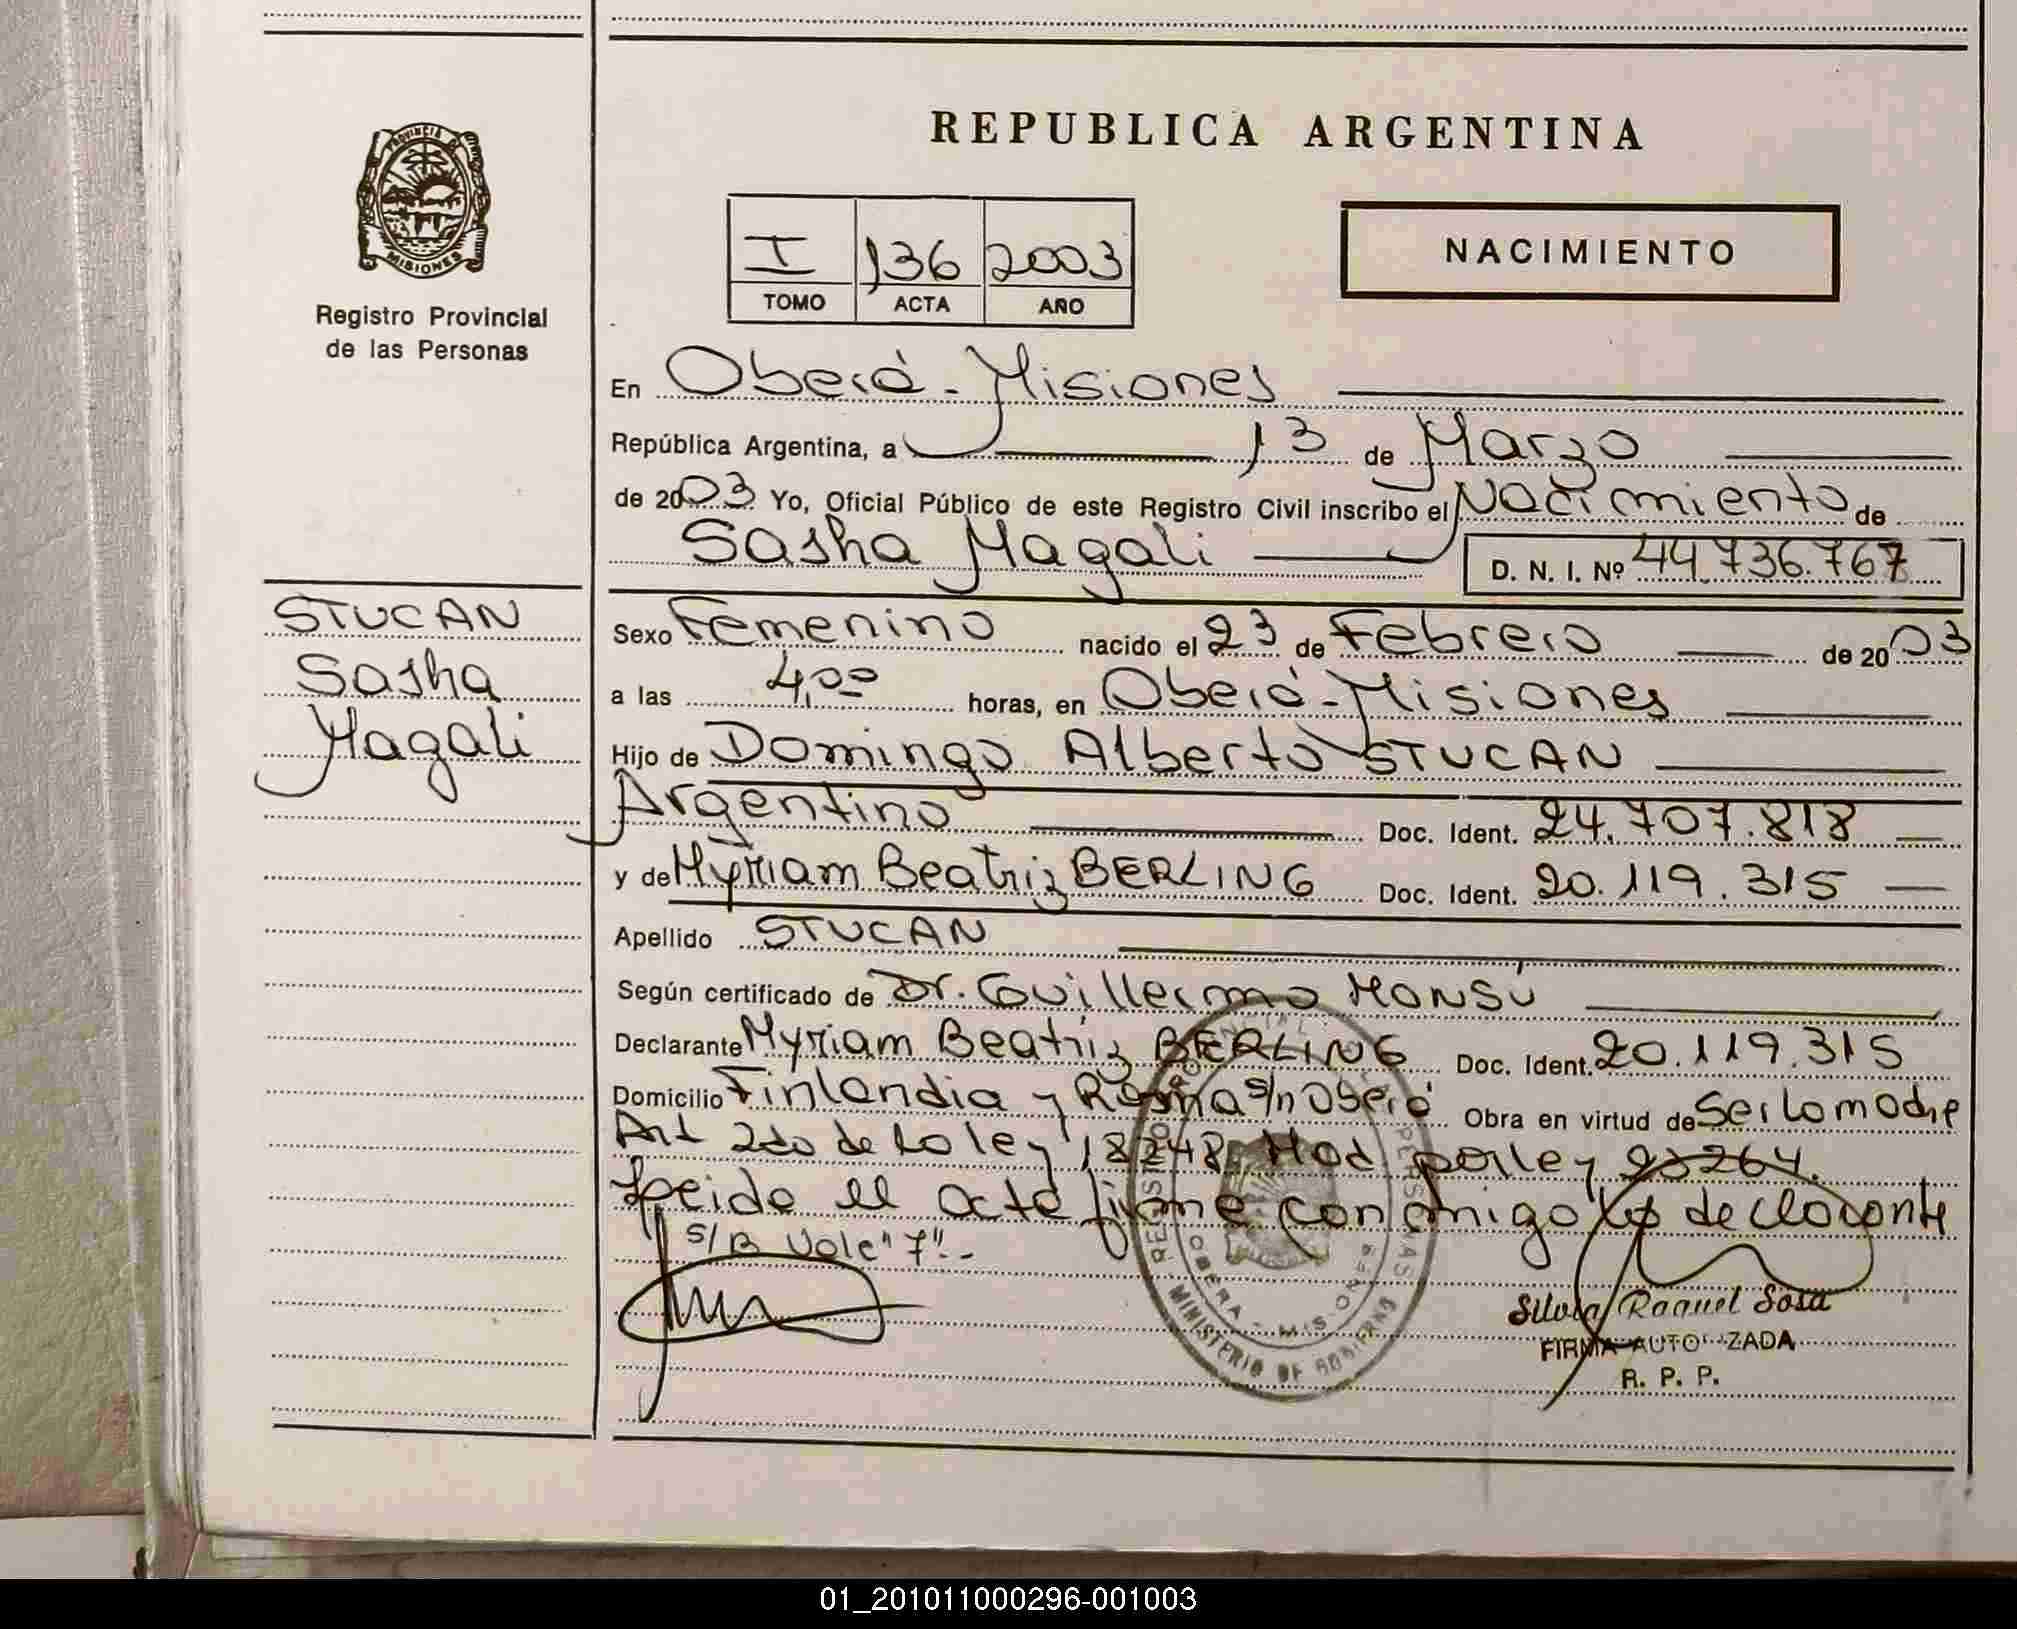 REPUBLICA ARGENTINA
PROVINCIA DE
MISIONES
Registro Provincial
de las Personas
I 136 2003
TOMO ACTA AÑO
NACIMIENTO
En Oberá - Misiones
República Argentina, a 13 de Marzo
de 2003 Yo, Oficial Público de este Registro Civil inscribo el Nacimiento de
Sasha Magali D. N. I. Nº 44.736.767
STUCAN
Sasha
Magali
Sexo Femenino nacido el 23 de Febrero de 2003
a las 4,00 horas, en Oberá - Misiones
Hijo de Domingo Alberto STUCAN
Argentino Doc. Ident. 24.707.818
y de Myriam Beatriz BERLING Doc. Ident. 20.119.315
Apellido STUCAN
Según certificado de Dr. Guillermo MONSÚ
Declarante Myriam Beatriz BERLING Doc. Ident. 20.119.315
Domicilio Finlandia y Roma s/n Oberá Obra en virtud de Ser la madre
Art 2do de la ley 18248 Mod por ley 23264.
Leida el acta firma conmigo la declarante
S/B Vale "7".-
OBERA - MISIONES
MINISTERIO DE GOBIERNO
Silvia Raquel Sosa
FIRMA AUTORIZADA
R. P. P.
01_201011000296-001003